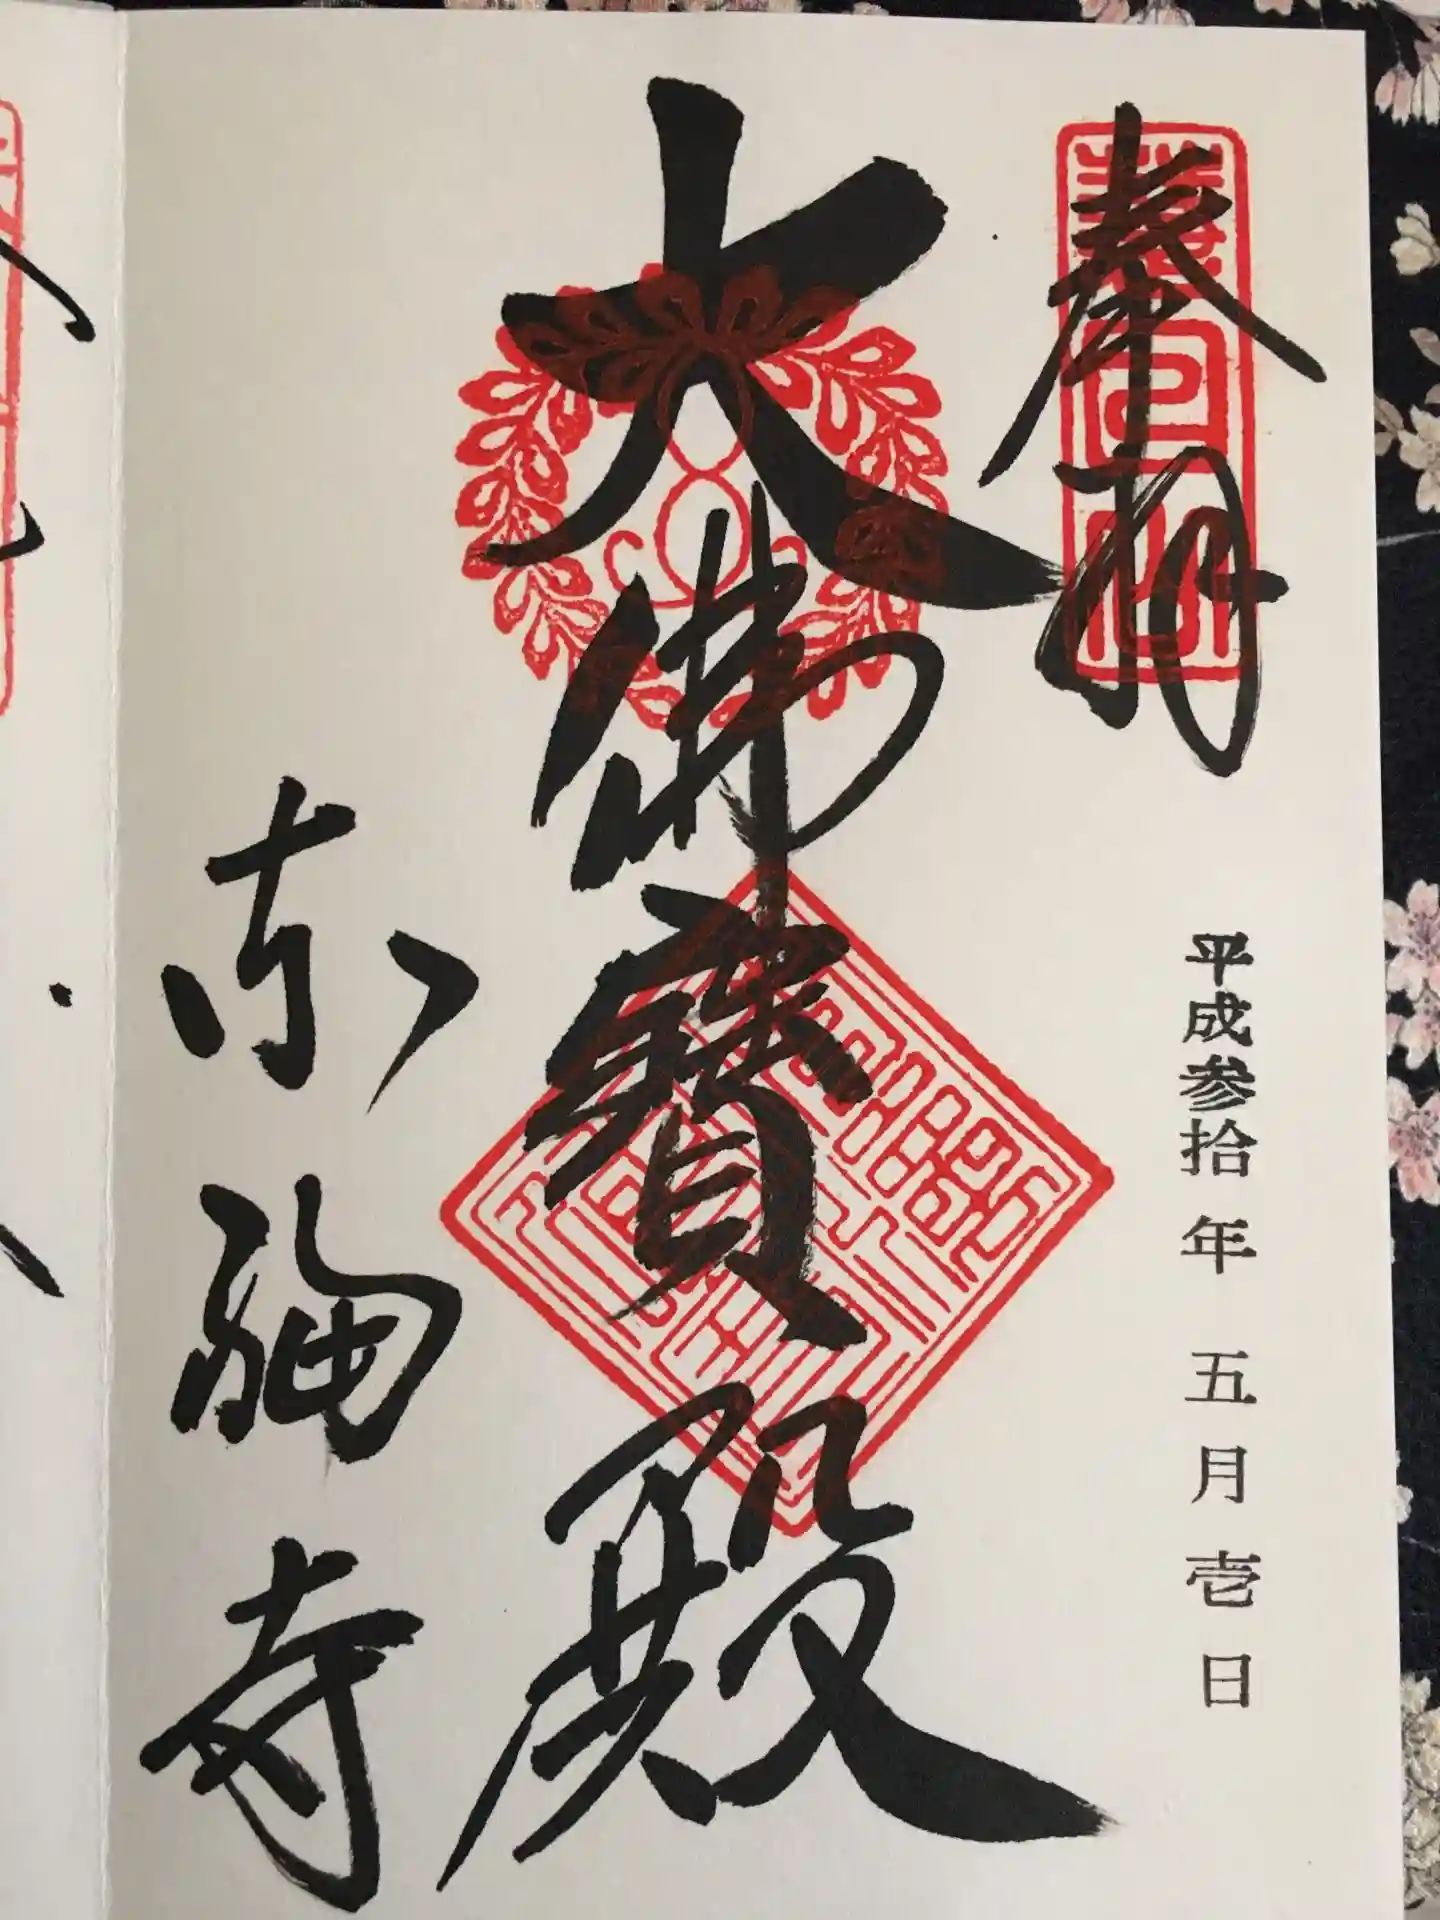 奉拝
平成参拾年 五月壱日
大佛寳殿
東福寺